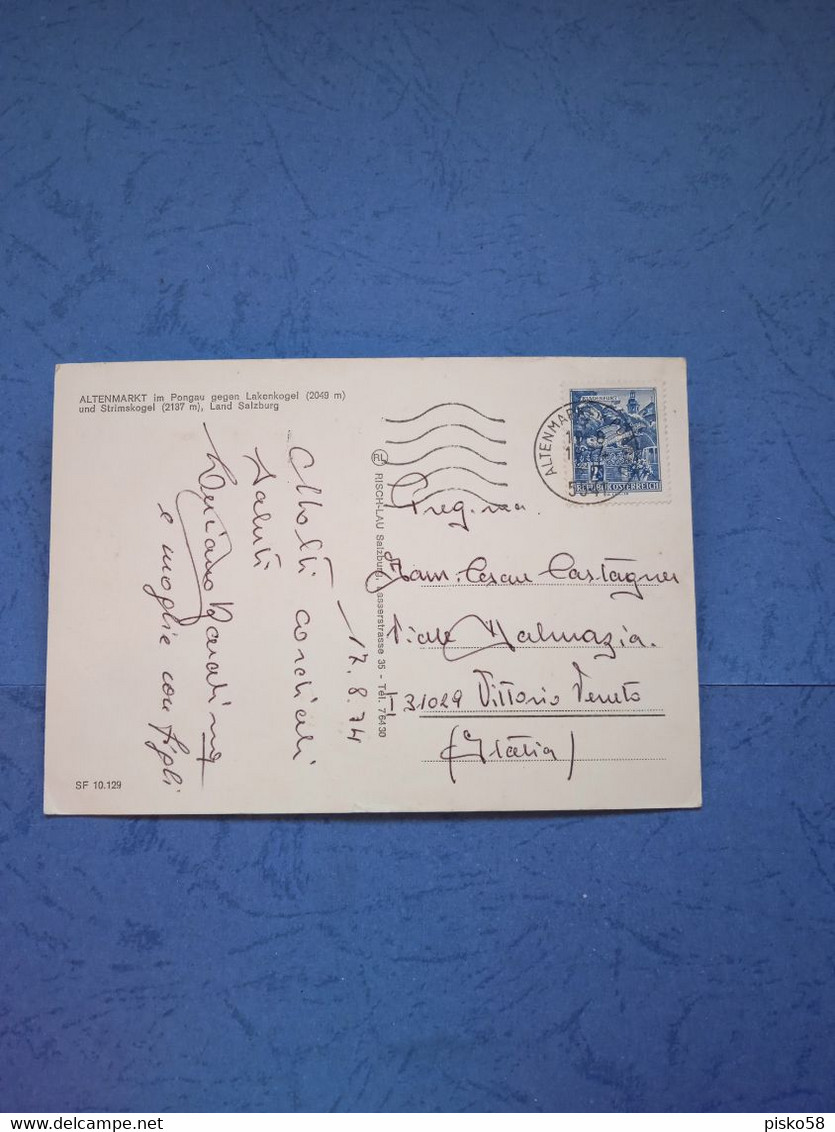 ALTENMARKT im Pongau gegen Lakenkogel (2049 m)
und Strimskogel (2137 m), Land Salzburg
17.8.74
Molti cordiali
saluti
Luciano
e moglie con figli
SF 10.129
RL RISCH-LAU Salzburg, asserstrasse 35 - Tel. 76430
ALTENMARKT
REPUBLIK ÖSTERREICH
Preg.mo
Castagner
Viale Dalmazia.
I 31029 Vittorio Veneto
(Italia)
delcampe.net
pisko58